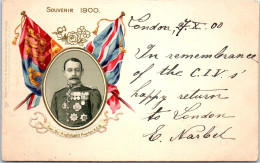 SOUVENIR 1900.
London, 27.X.00
In remembrance
of the C.I.V's'
happy return
to London
E. Narbel